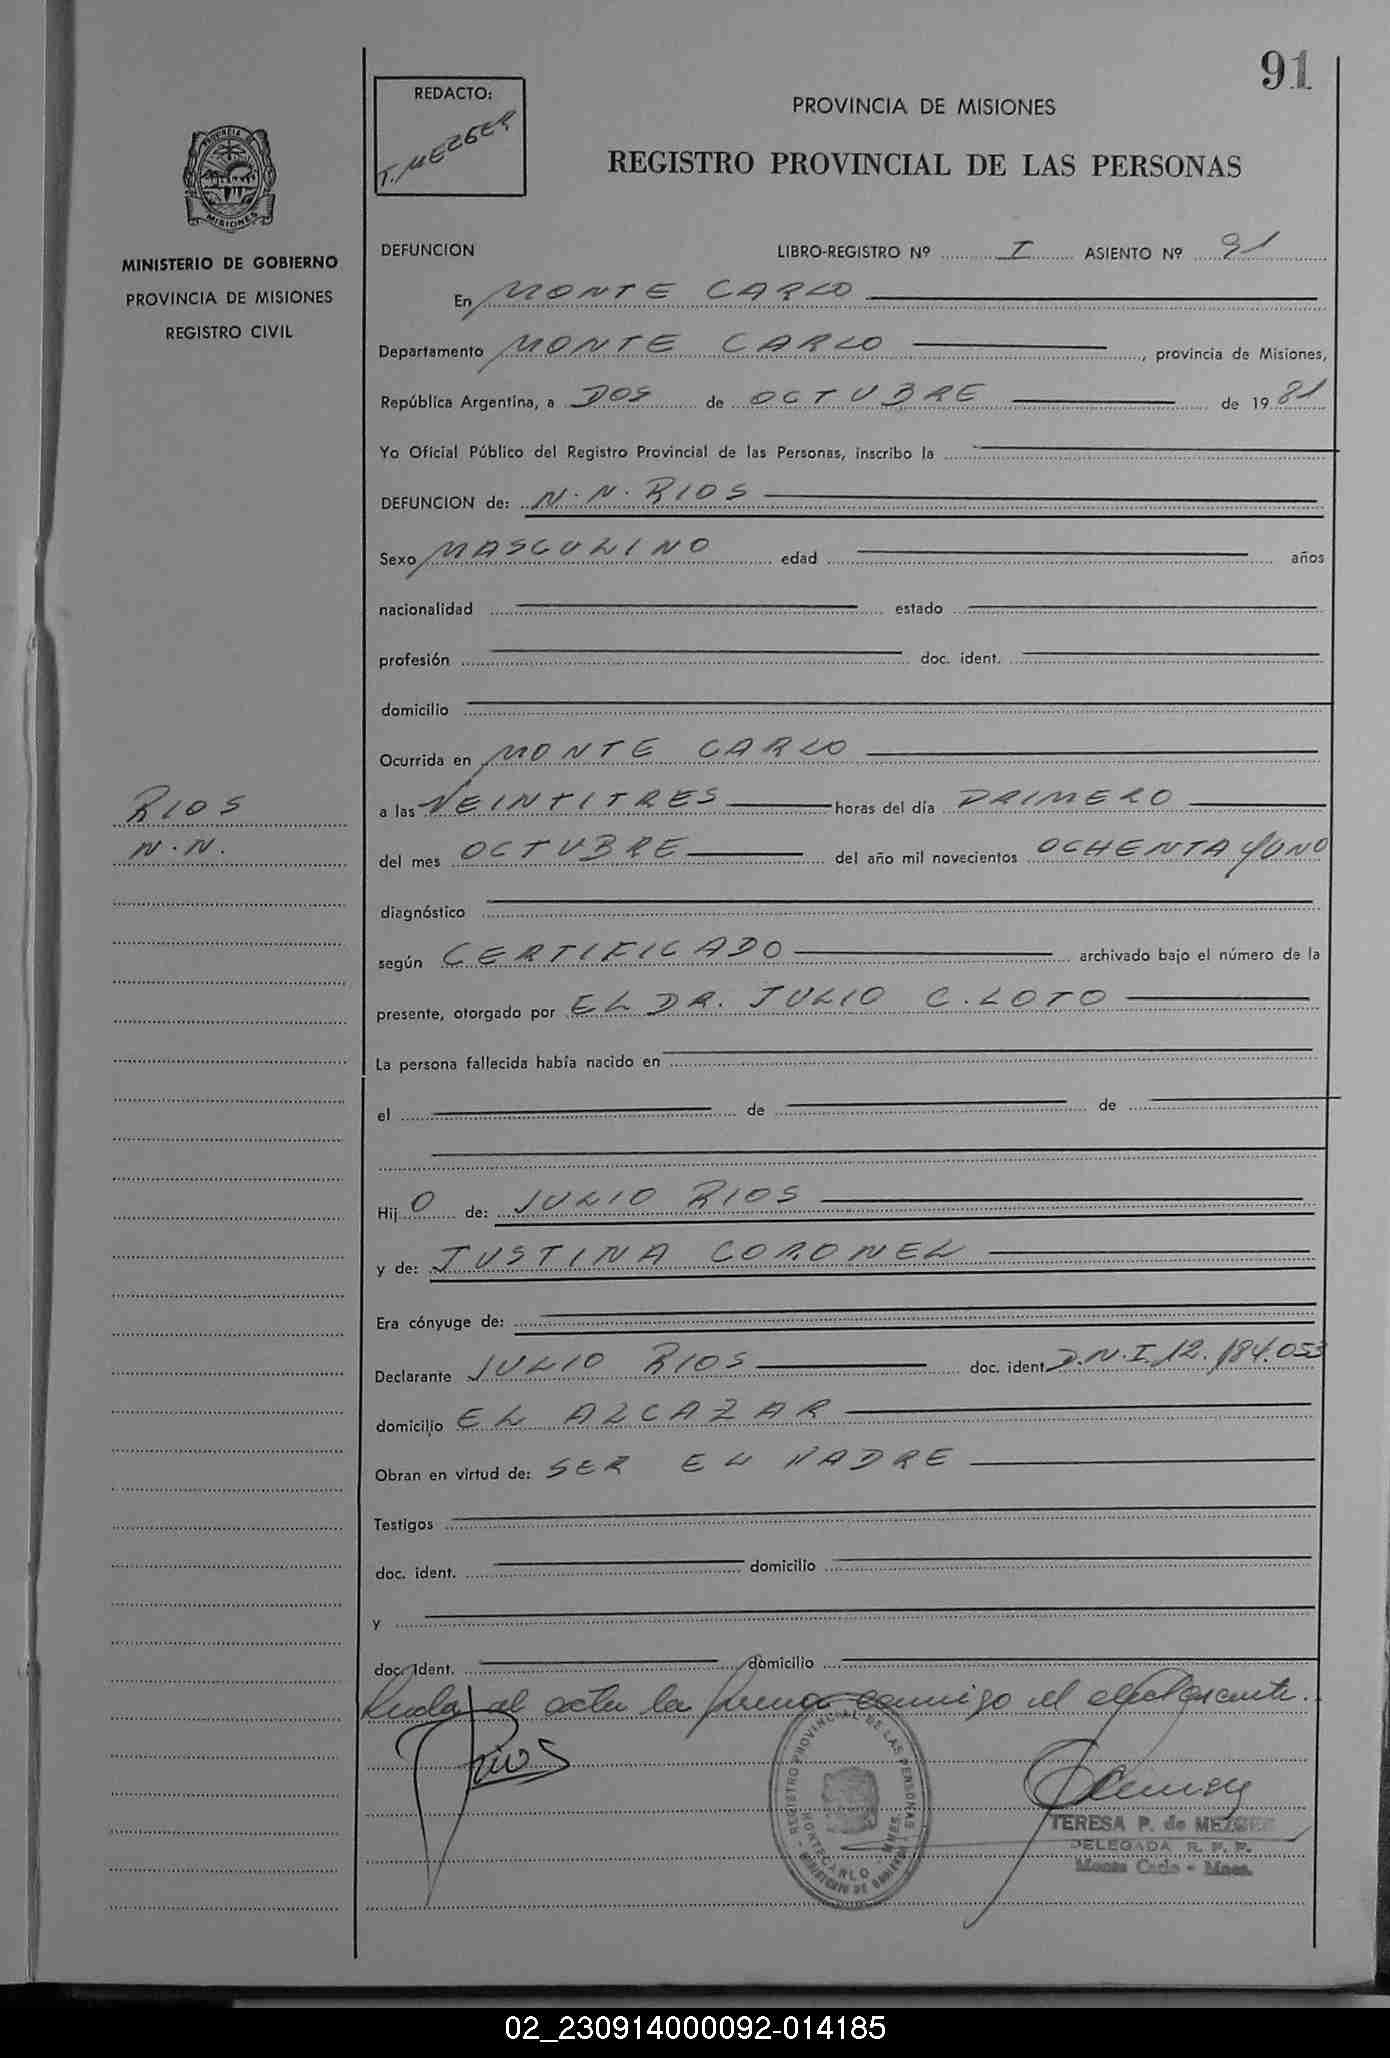 91
REDACTO:
T. MEZGER
PROVINCIA DE MISIONES
REGISTRO PROVINCIAL DE LAS PERSONAS
PROVINCIA DE
MISIONES
MINISTERIO DE GOBIERNO
PROVINCIA DE MISIONES
REGISTRO CIVIL
DEFUNCION LIBRO-REGISTRO Nº I ASIENTO Nº 91
En MONTE CARLO
Departamento MONTE CARLO, provincia de Misiones,
República Argentina, a DOS de OCTUBRE de 1981
Yo Oficial Público del Registro Provincial de las Personas, inscribo la
DEFUNCION de: N.N. RIOS
Sexo MASCULINO edad años
nacionalidad estado
profesión doc. ident.
domicilio
Ocurrida en MONTE CARLO
RIOS
N.N.
a las VEINTITRES horas del día PRIMERO
del mes OCTUBRE del año mil novecientos OCHENTA Y UNO
diagnóstico
según CERTIFICADO archivado bajo el número de la
presente, otorgado por EL DR. JULIO C. LOTO
La persona fallecida había nacido en
el de de
Hij O de: JULIO RIOS
y de: JUSTINA CORONEL
Era cónyuge de:
Declarante JULIO RIOS doc. ident. D.N.I. 12.184.053
domicilio EL ALCAZAR
Obran en virtud de: SER EL PADRE
Testigos
doc. ident. domicilio
y
doc. ident. domicilio
al acta la firma conmigo el declarante.
Rios
REGISTRO PROVINCIAL DE LAS PERSONAS
MONTECARLO - MNES.
MINISTERIO DE GOBIERNO
TERESA P. de MEZGER
DELEGADA R. P. P.
Monte Carlo - Mnes.
02_230914000092-014185